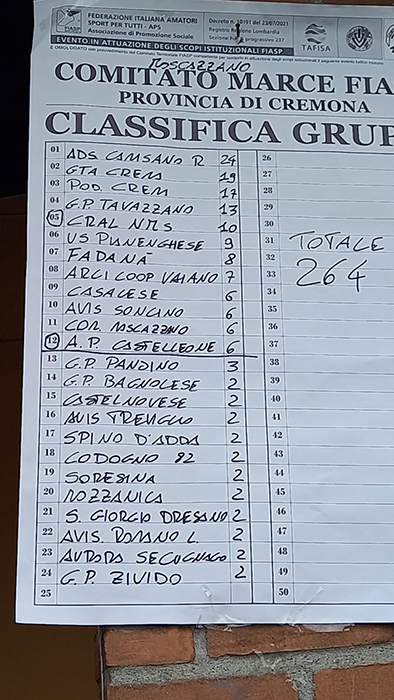 FEDERAZIONE ITALIANA AMATORI
SPORT PER TUTTI - APS
Associazione di Promozione Sociale
Decreto n. 10191 del 23/07/2021
Registro Regione Lombardia
progressivo 237
FIASP
TAFISA
EVENTO IN ATTUAZIONE DEGLI SCOPI ISTITUZIONALI FIASP
MOSCAZZANO
COMITATO MARCE FIA
PROVINCIA DI CREMONA
CLASSIFICA GRUP
01 ADS CAMSANO R 24
02 GTA CREM 19
03 POD. CREM 17
04 G.P. TAVAZZANO 13
05 CRAL NMS 10
06 US PIANENGHESE 9
07 FADANA 8
08 ARCI COOP VAIANO 7
09 CASALESE 6
10 AVIS SONCINO 6
11 COM. MOSCAZZANO 6
12 A.P. CASTELLEONE 6
13 G.P. PANDINO 3
14 G.P. BAGNOLESE 2
15 CASTELNOVESE 2
16 AVIS TREVIGLIO 2
17 SPINO D'ADDA 2
18 CODOGNO 82 2
19 SORESINA 2
20 MOZZANICA 2
21 S. GIORGIO DRESANO 2
22 AVIS. ROMANO L. 2
23 AURORA SECUGNAGO 2
24 G.P. ZIVIDO 2
25
26
27
28
29
30
31 TOTALE
32
33 264
34
35
36
37
38
39
40
41
42
43
44
45
46
47
48
49
50